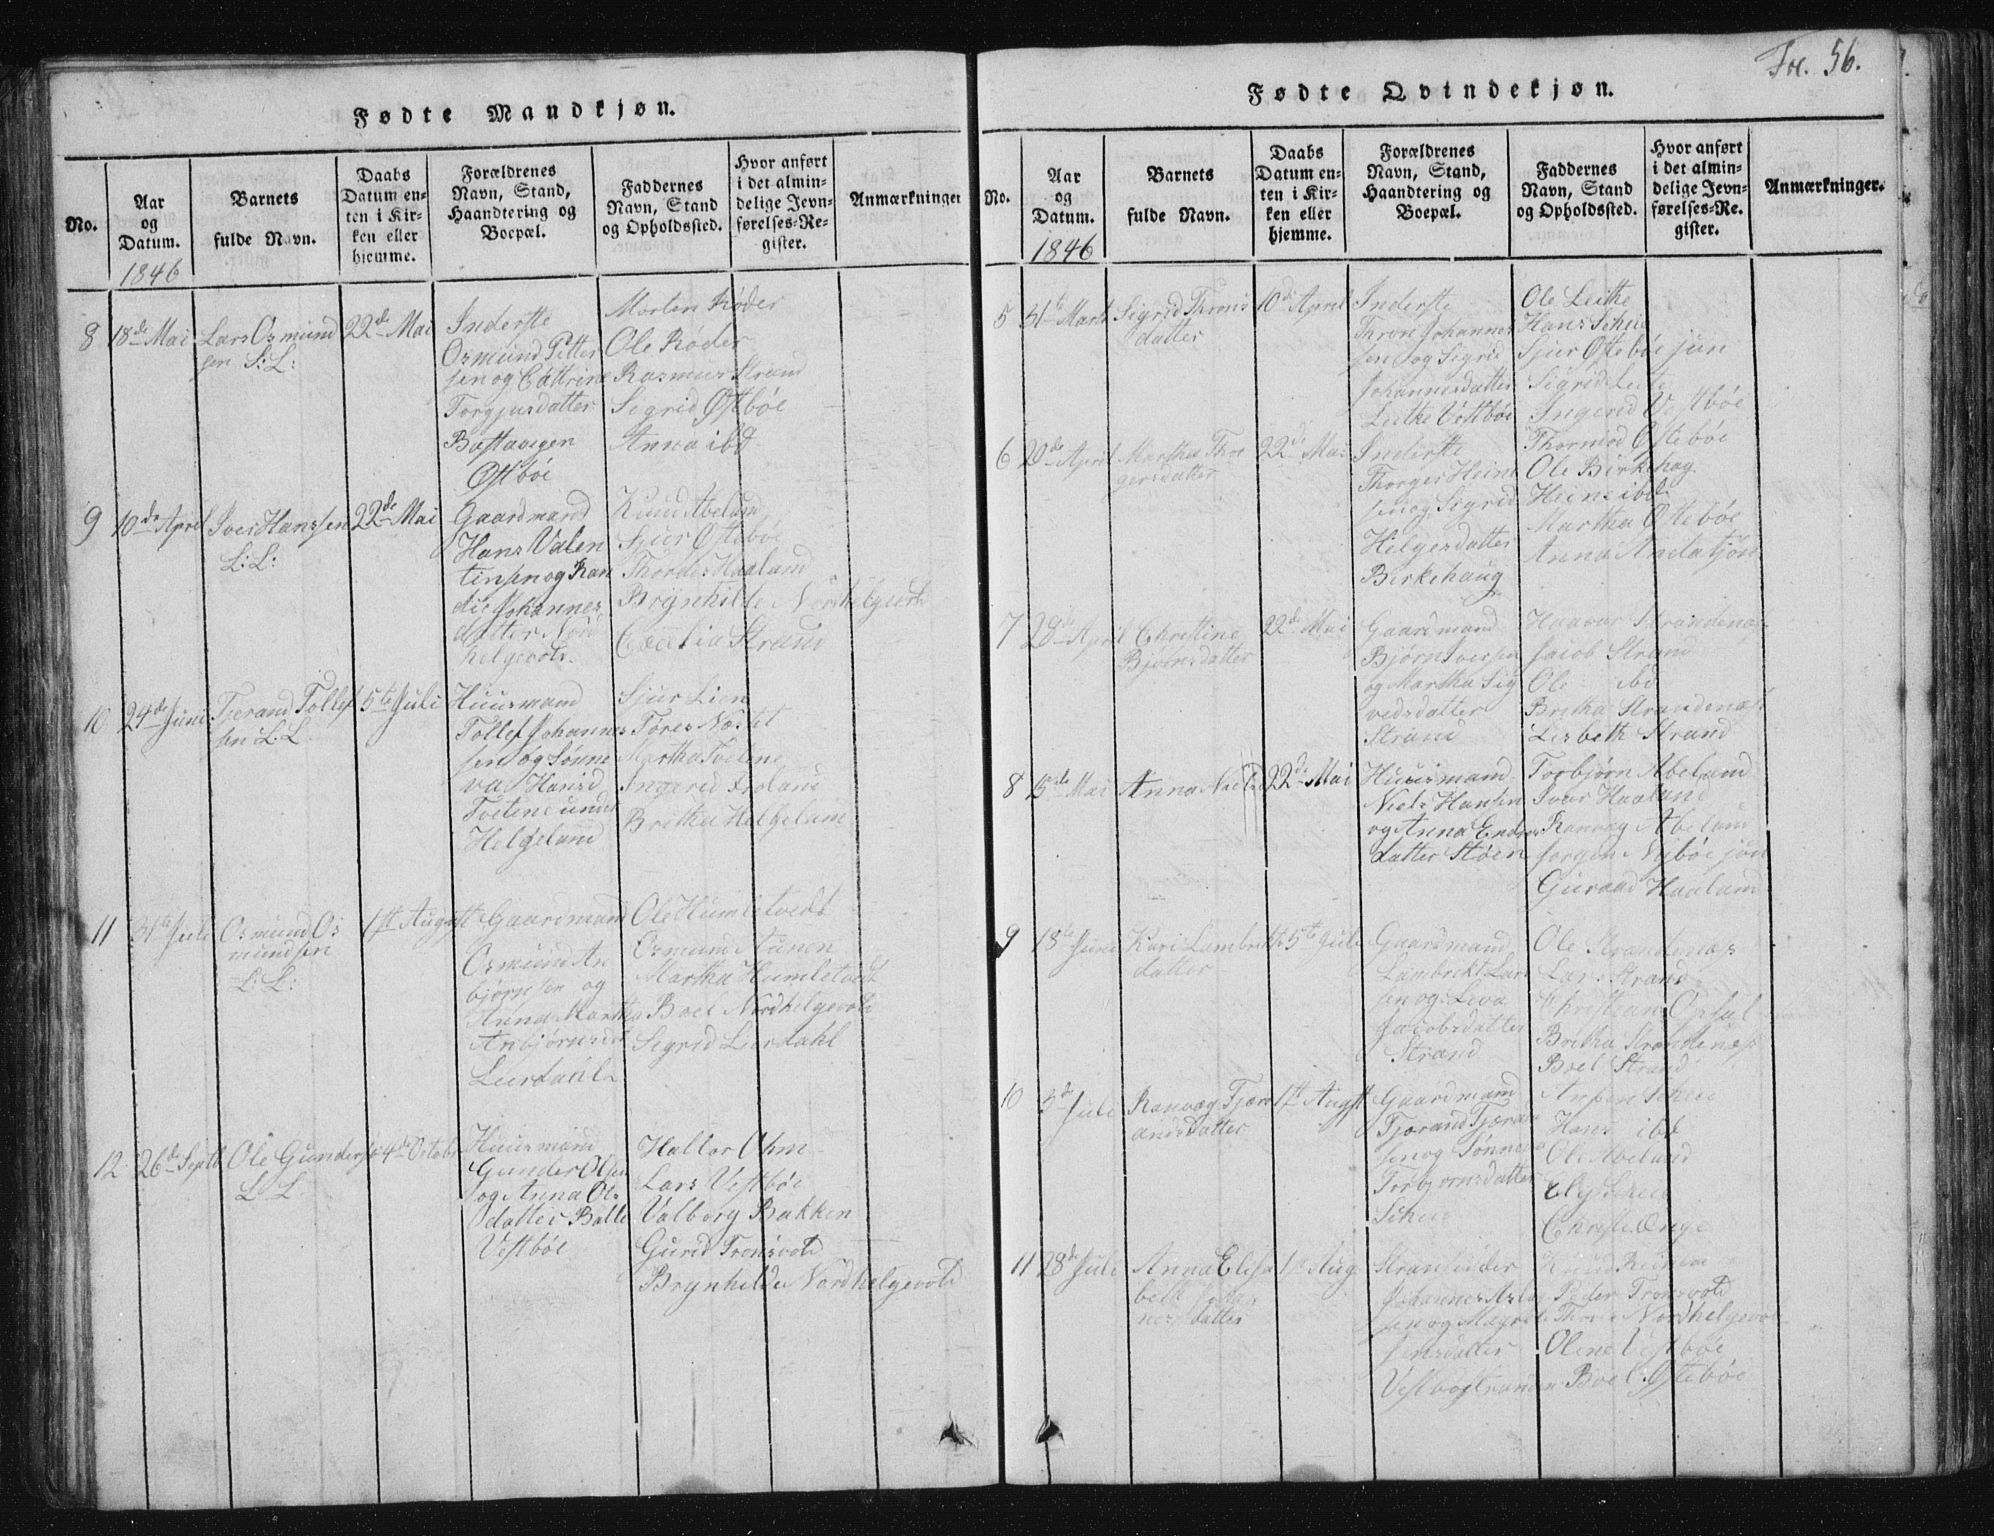 Fødte Mandkjøn.
No.
Aar
og
Datum.
1846
Barnets
fulde Navn.
Daabs
Datum en-
ten i Kir-
ken eller
hjemme.
Forældrenes
Navn, Stand,
Haandtering og
Boepæl.
Faddernes
Navn, Stand
og Opholdssted.
Hvor anført
i det almin-
delige Jevn-
førelses-Re-
gister.
Anmærkninger
8
18de Mai
Lars Osmund
sen S: L:
22de Mai
Inderste
Osmund Petter
sen og Cattrine
Torgjusdatter
Østbøe
Morten Røder
Ole Røder
Rasmus Strand
Segrid Østbøe
Anna ibd
9
10de April
Iver Hanssen
L: L:
22de Mai
Gaardmand
Hans Valen
tinsen og Ran
die Johannes
datter Nord
helgevold
Knud Abeland
Sjur Østebøe
Thordes Haaland
Brynhilde Nordhelgevolt
Cecelia Strand
10
24de Juni
Tjerand Tollef
sen L: L.
5te Juli
Huusmand
Tollef Johannes
sen og Sønne
va Hansd
Tvetene under
Helgeland
Sjur Lien
Tores Næstet
Martha Tvetene
Ingerid Froland
Britha Helgeland
11
31te Juli
Osmund Os
mundsen
L: L:
1st August
Gaardmand
Osmund An
bjørnsen og
Anna Martha
Anbjørnsd
Leerdahl
Ole Humletvedt
Osmund Aunen
Martha Humletvedt
Boel Nordhelgevold
Segrid Leerdahl
12
26de Septb
Ole Gundersen
L: L:
4de Octobr
Huusmand
Gunder Olsen
og Anna Ols
datter Balle
Vestbøe
Haltor Ohm
Lars Vestbøe
Valborg Bakken
Gurid Tronsvold
Brynhilde Nordhelgevold
Fol. 56.
Fødte Qvindekjøn.
No.
Aar
og
Datum.
1846
Barnets
fulde Navn.
Daabs
Datum en-
ten i Kir-
ken eller
hjemme.
Forældrenes
Navn, Stand,
Haandtering og
Boepæl.
Faddernes
Navn, Stand
og Opholdssted.
Hvor anført
i det almin-
delige Jevn-
førelses-Re-
gister.
Anmærkninger.
5
31te Marts
Sigrid Throns
datter
10de April
Inderste
Thron Johannes
sen og Sigrid
Johannesdatter
Leithe Vestbøe
Ole Leithe
Hans Scheie
Sjur Østebøe jun
Sigrid Leite
Ingerid Vestbøe
6
20de April
Martha Thor
gersdatter
22de Mai
Inderste
Thorger Heine
sen og Sigrid
Helgesdatter
Birkehaug
Thormod Østebøe
Ole Birkehag
Heine ibd
Martha Østebøe
Anna Andatjøn
7
28de April
Christine
Bjørnsdatter
22de Mai
Gaardmand
Bjørn Iversen
og Martha Sig
vedsdatter
Strand
Haavar Strandenæs
Jacob Strand
Ole ibd
Britha Strandenæs
Lisbeth Strand
8
15de Mai
Anna Nielsd
22de Mai
Huusmand
Niels Hansen
og Anna Endres
datter Støen
Torbjørn Abeland
Ivar Haaland
Ranvæg Abeland
Jørgen Nybøe jøn
Guraad Haaland
9
18de Juni
Kari Lambrekts
datter
5te Juli
Gaardmand
Lambrekt Lar
sen og Leva
Jacobsdatter
Strand
Ole Strandenæs
Lars Strand
Christian Opsal
Britha Strandenæs
Boel Strand
10
3de Juli
Ranvæg Tjær
andsdatter
1st Augst
Gaardmand
Tjærand Tjæran
sen og Sønneva
Torbjornsdatter
Scheie
Ansten Scheie
Hans ibd
Ole Abeland
Ely Scheie
Christe Ørge
11
28de Juli
Anna Elisa
beth Johan
nesdatter
1st Aug
Strandsidder
Johannes Aslag
sen og Magrete
Jensdatter
Knud Reinen
Peder Tronsvold
Thore Nordhelgevold
Olene Vestbøe
Boel Østebøe